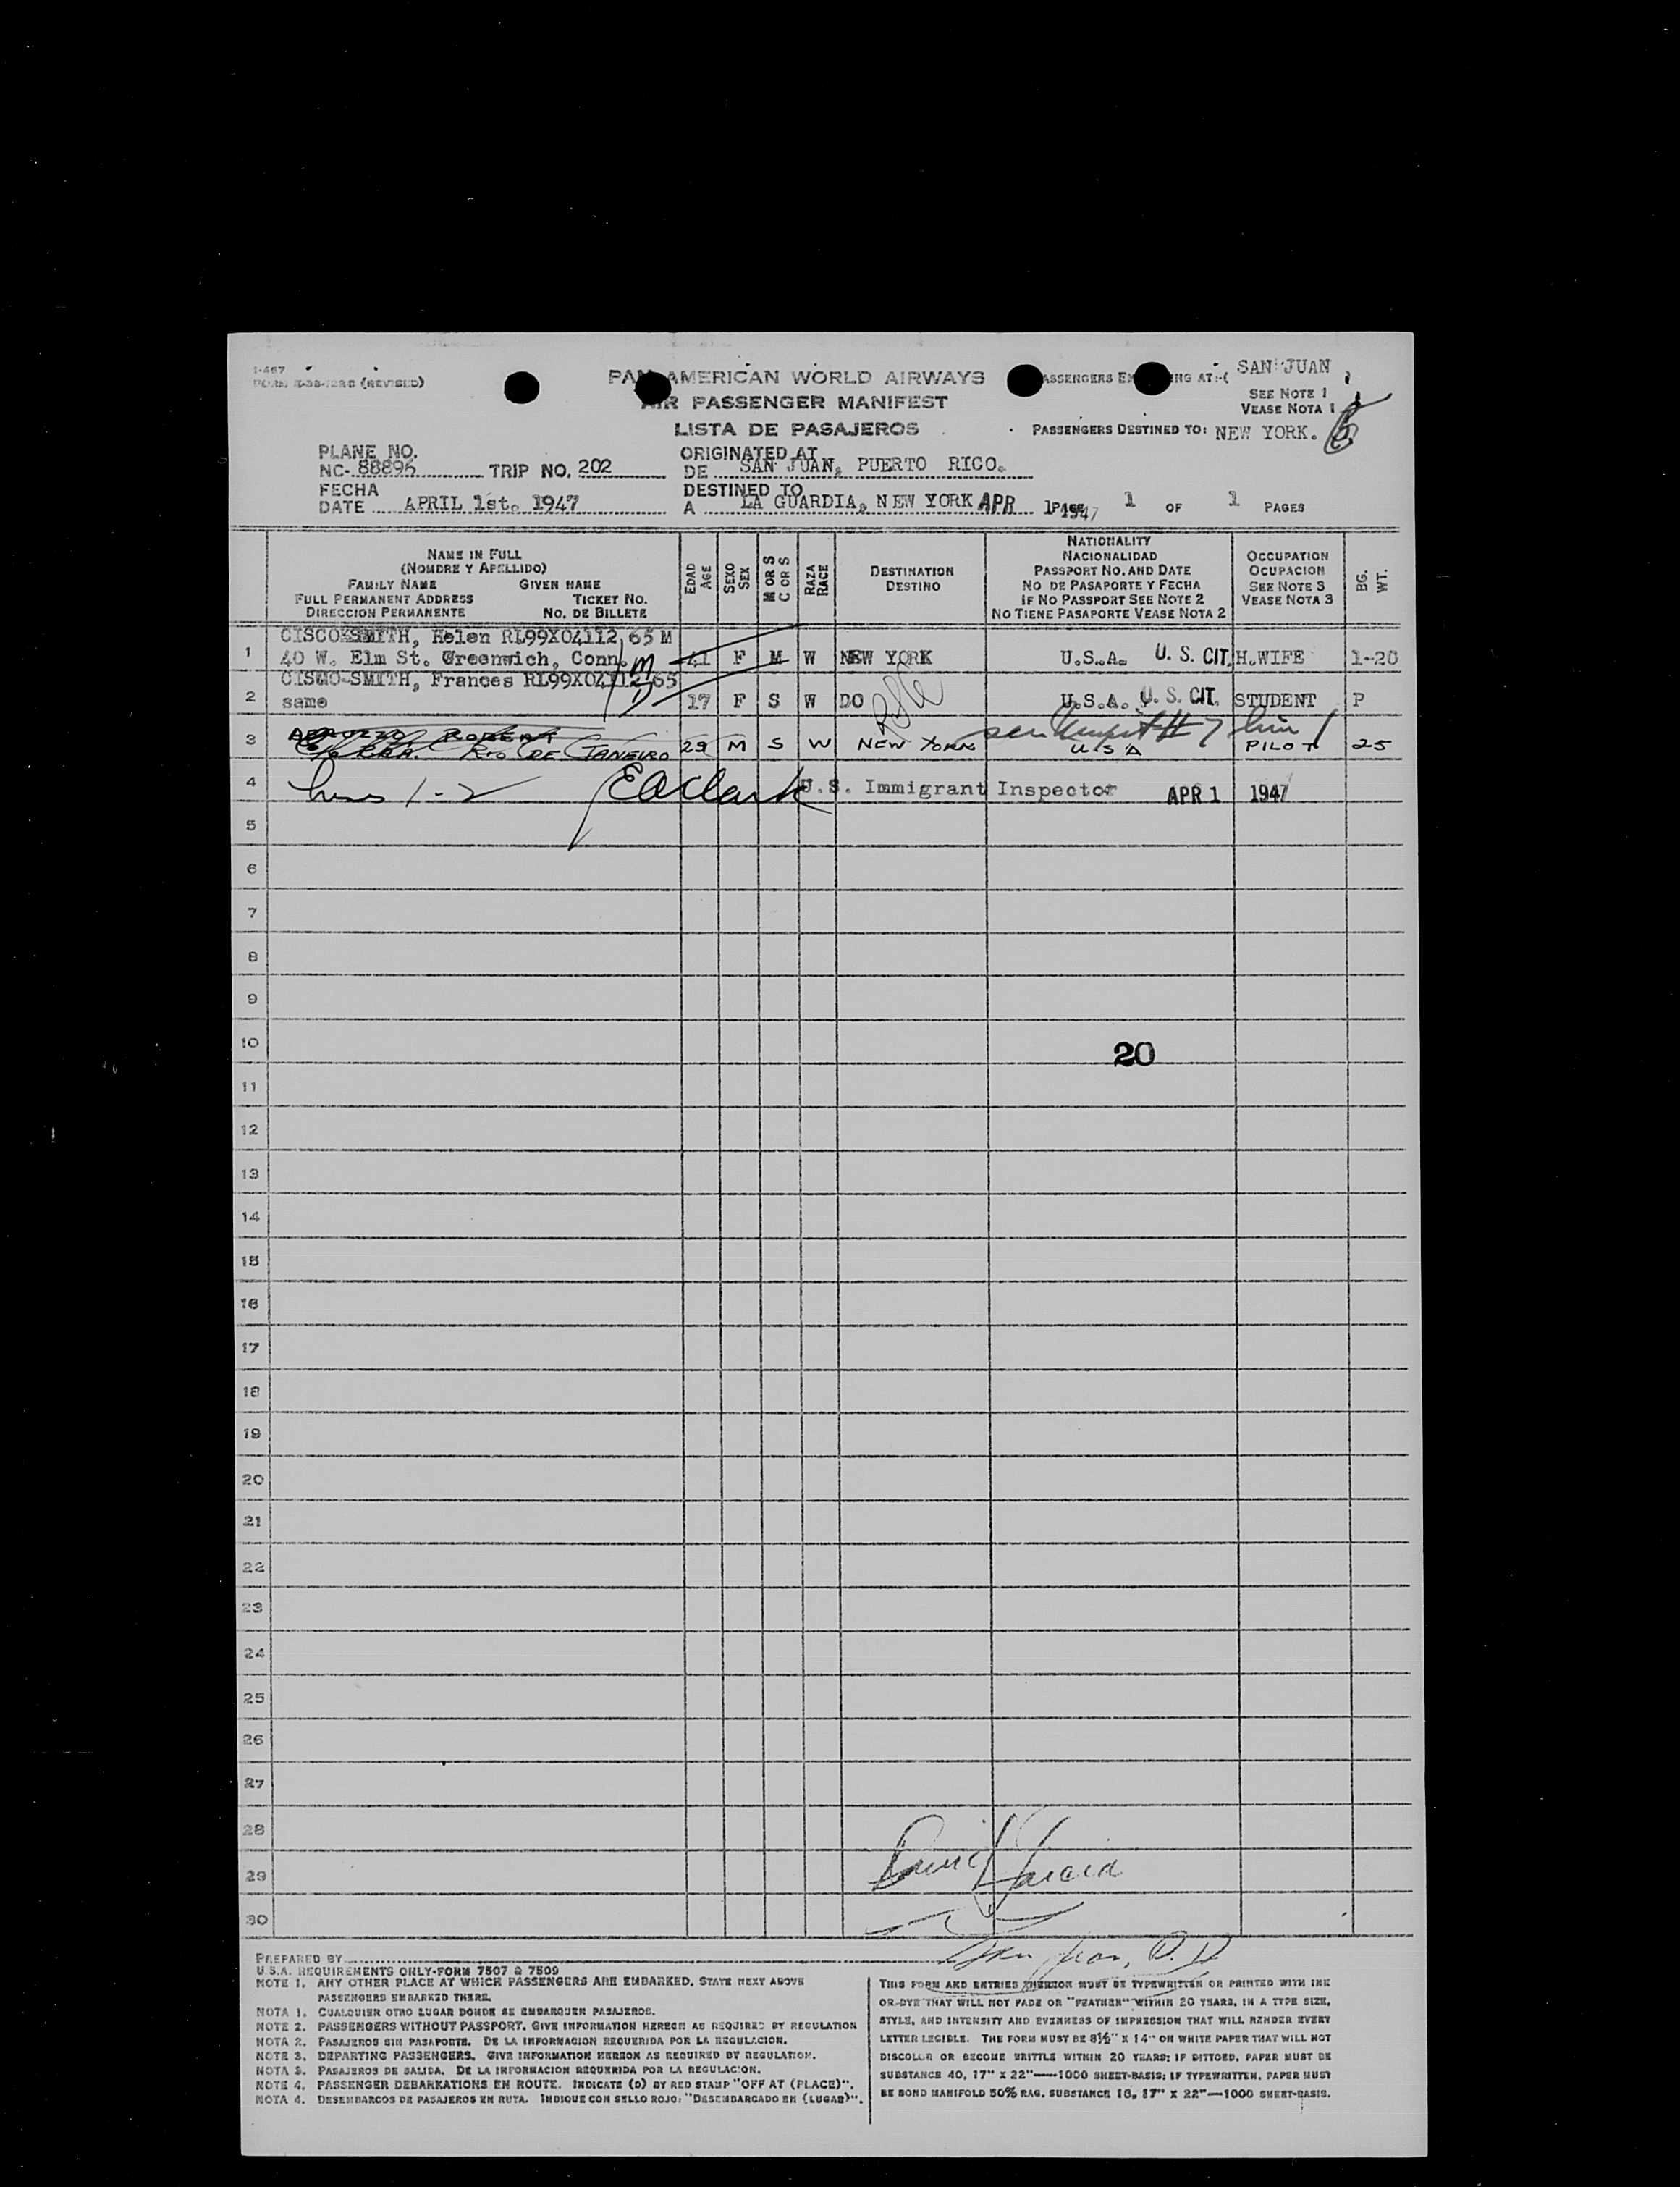 I-467
(REVISED)
PAN AMERICAN WORLD AIRWAYS
AIR PASSENGER MANIFEST
LISTA DE PASAJEROS
SAN JUAN
SEE NOTE 1
VEASE NOTA 1
PASSENGERS DESTINED TO: NEW YORK.
PLANE NO.
NC- 88896 TRIP NO. 202
ORIGINATED AT
DE SAN JUAN, PUERTO RICO.
FECHA
DATE APRIL 1st. 1947
DESTINED TO
A LA GUARDIA, NEW YORK APR 1 1947 PAGE 1 OF 1 PAGES
NAME IN FULL
(NOMBRE Y APELLIDO)
FAMILY NAME GIVEN NAME
FULL PERMANENT ADDRESS TICKET NO.
DIRECCION PERMANENTE NO. DE BILLETE
EDAD
AGE
SEXO
SEX
M OR S
C OR S
RAZA
RACE
DESTINATION
DESTINO
NATIONALITY
NACIONALIDAD
PASSPORT NO. AND DATE
NO DE PASAPORTE Y FECHA
IF NO PASSPORT SEE NOTE 2
NO TIENE PASAPORTE VEASE NOTA 2
OCCUPATION
OCUPACION
SEE NOTE 3
VEASE NOTA 3
BG.
WT.
CISCO-SMITH, Helen RL99X04112,65 M
1 40 W. Elm St. Greenwich, Conn. 41 F M W NEW YORK U.S.A. U. S. CIT. H.WIFE 1-20
SMITH, Frances RL99X04112,65
2 same 17 F S W DO U.S.A. U. S. CIT. STUDENT P
ABRUZZO ROBERT
3 RIO DE JANEIRO 29 M S W NEW YORK U S A PILOT 25
4 lines 1-2 EAClark U.S. Immigrant Inspector APR 1 1947
5
6
7
8
9
10 20
11
12
13
14
15
16
17
18
19
20
21
22
23
24
25
26
27
28
29 David Garcia
30
San Juan, P.R.
PREPARED BY
U.S.A. REQUIREMENTS ONLY-FORM 7507 & 7509
NOTE 1. ANY OTHER PLACE AT WHICH PASSENGERS ARE EMBARKED, STATE NEXT ABOVE
PASSENGERS EMBARKED THERE.
NOTA 1. CUALQUIER OTRO LUGAR DONDE SE EMBARQUEN PASAJEROS.
NOTE 2. PASSENGERS WITHOUT PASSPORT. GIVE INFORMATION HEREON AS REQUIRED BY REGULATION
NOTA 2. PASAJEROS SIN PASAPORTE. DE LA INFORMACION REQUERIDA POR LA REGULACION.
NOTE 3. DEPARTING PASSENGERS. GIVE INFORMATION HEREON AS REQUIRED BY REGULATION.
NOTA 3. PASAJEROS DE SALIDA. DE LA INFORMACION REQUERIDA POR LA REGULACION.
NOTE 4. PASSENGER DEBARKATIONS EN ROUTE. INDICATE (D) BY RED STAMP "OFF AT (PLACE)".
NOTA 4. DESEMBARCOS DE PASAJEROS EN RUTA. INDIQUE CON SELLO ROJO: "DESEMBARCADO EN (LUGAR)".
THIS FORM AND ENTRIES THEREON MUST BE TYPEWRITTEN OR PRINTED WITH INK
OR DYE THAT WILL NOT FADE OR "FEATHER" WITHIN 20 YEARS, IN A TYPE SIZE,
STYLE, AND INTENSITY AND EVENNESS OF IMPRESSION THAT WILL RENDER EVERY
LETTER LEGIBLE. THE FORM MUST BE 8½" X 14" ON WHITE PAPER THAT WILL NOT
DISCOLOR OR BECOME BRITTLE WITHIN 20 YEARS; IF DITTOED, PAPER MUST BE
SUBSTANCE 40, 17" X 22"—1000 SHEET-BASIS; IF TYPEWRITTEN, PAPER MUST
BE BOND MANIFOLD 50% RAG, SUBSTANCE 16, 17" X 22"—1000 SHEET-BASIS.